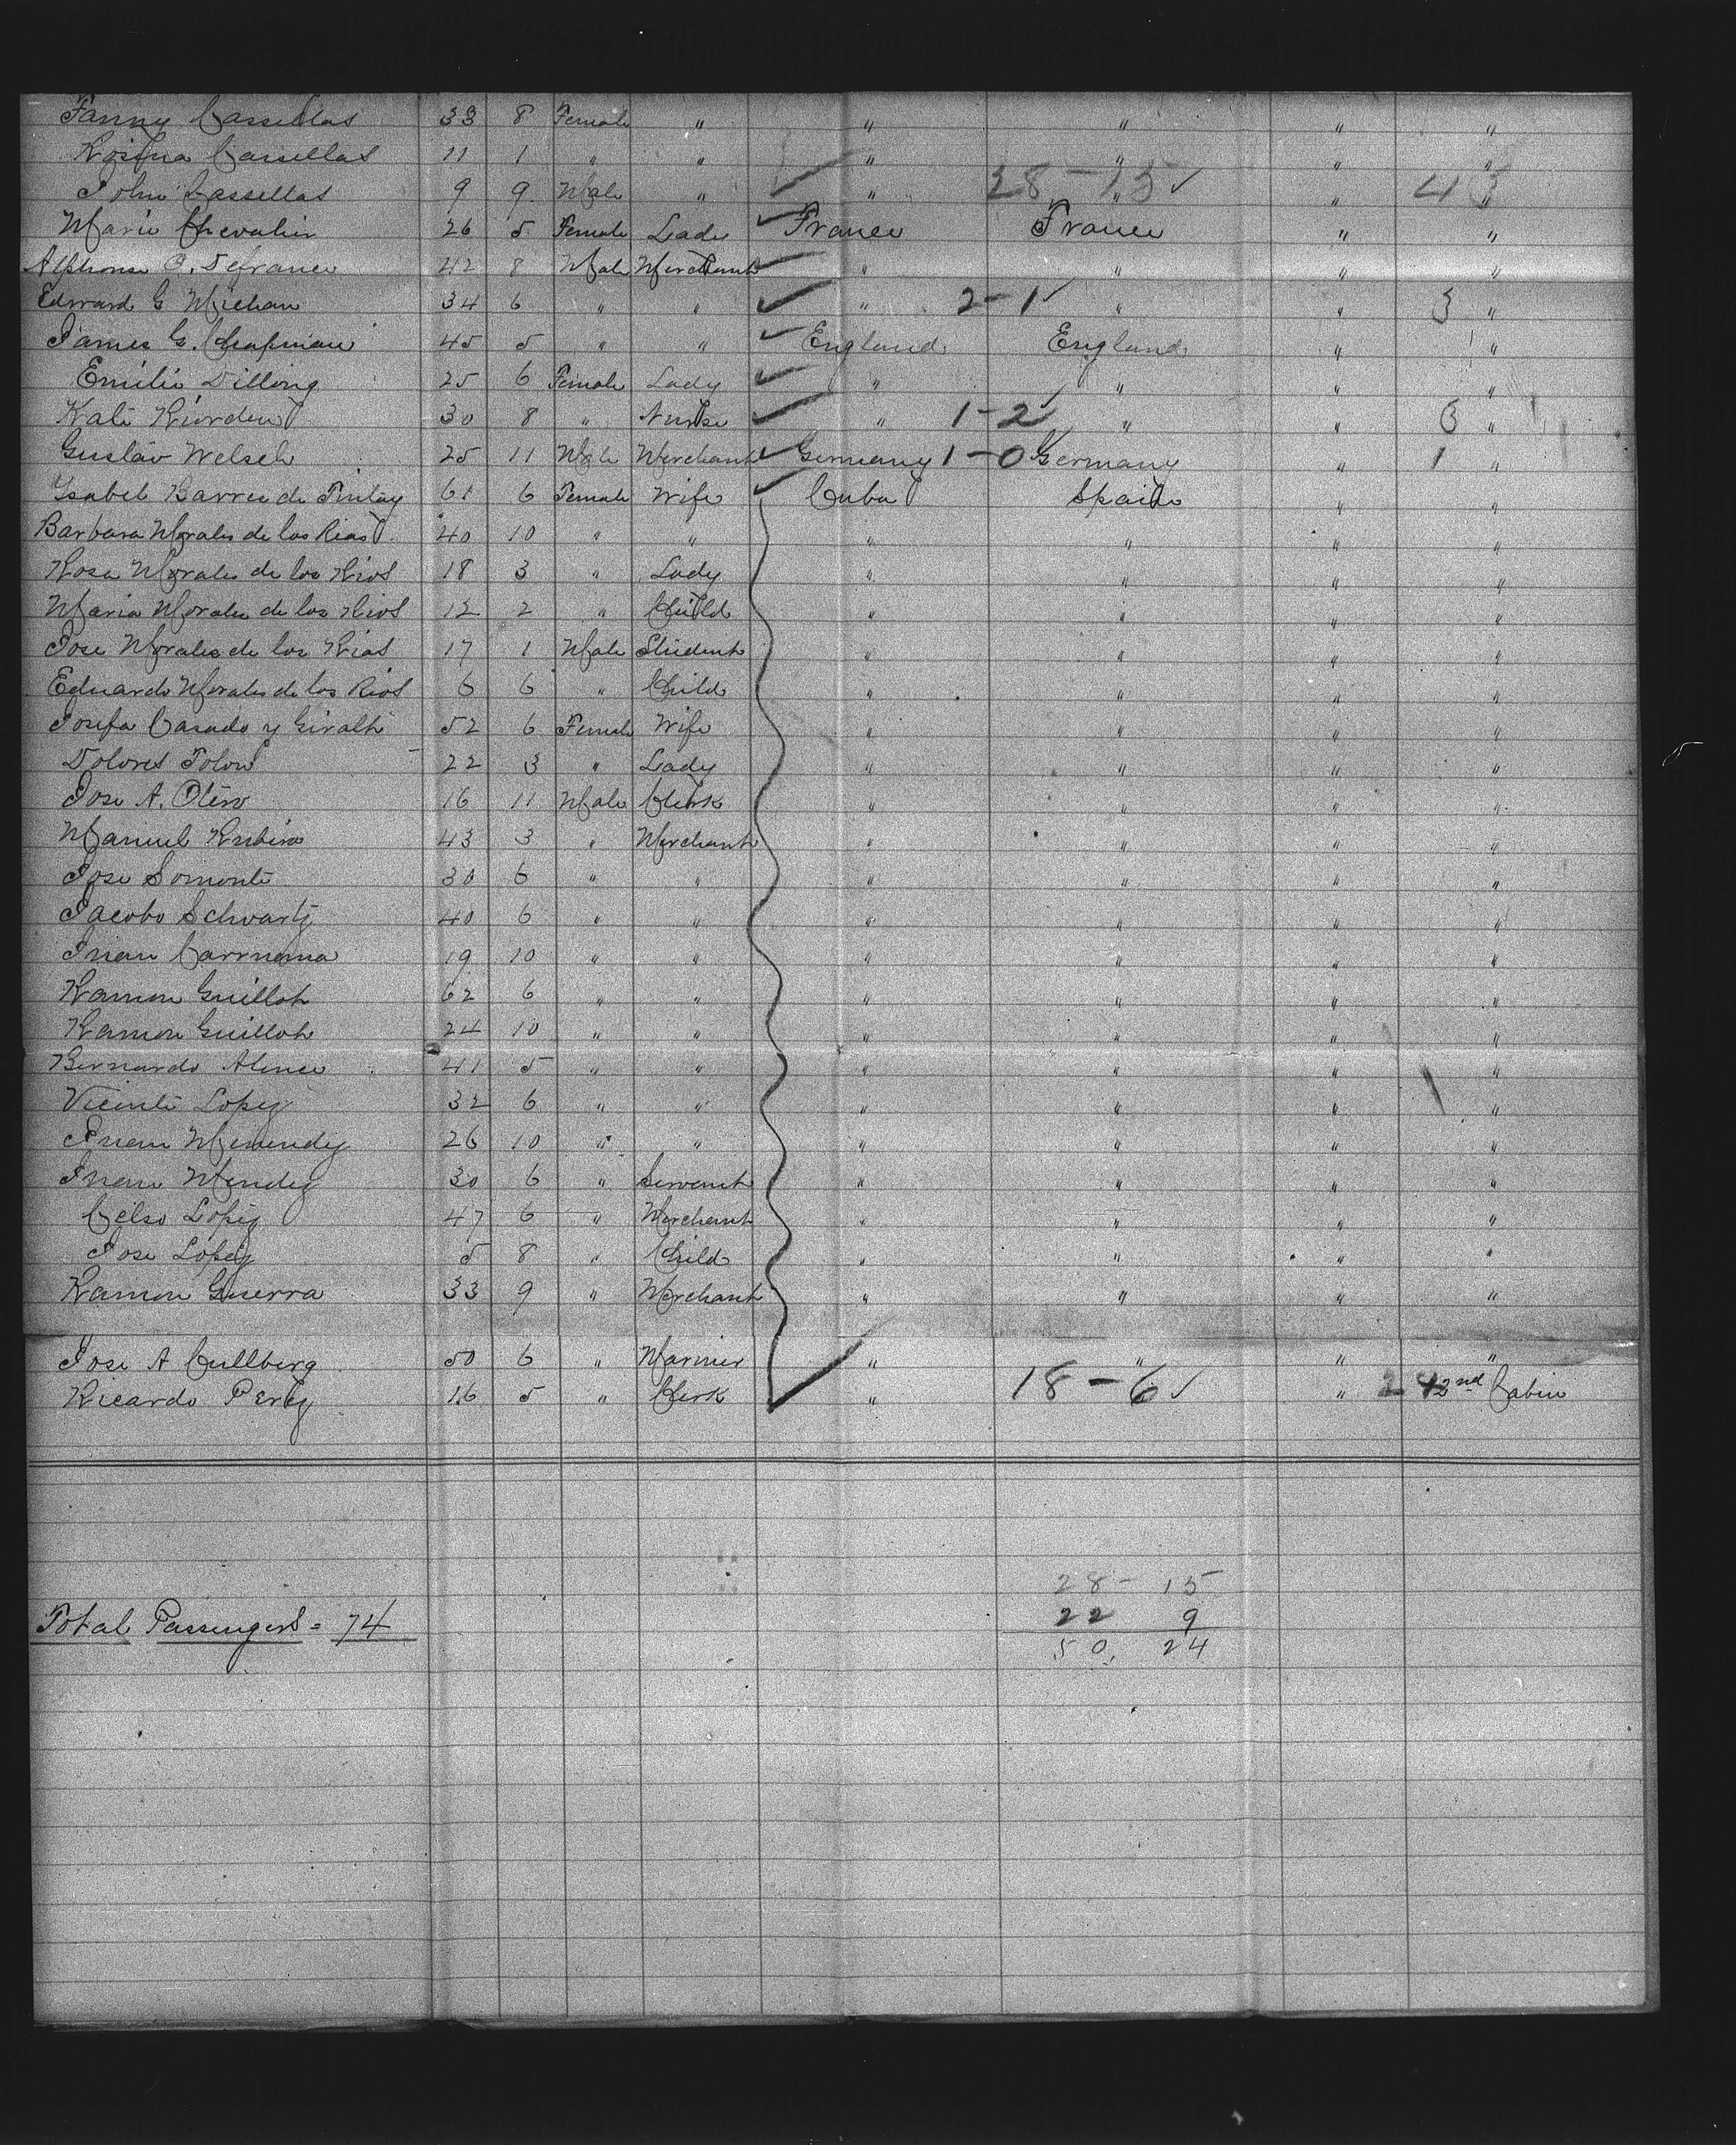 Fanny Cassellas 33 8 Female " " " " "
Rosina Cassellas 11 1 " " " " " "
John Cassellas 9 9 Male " " 28-15 " " 43 "
Marie Chevalier 26 5 Female Lady France France " "
Alphonse O. Defrance 42 8 Male Merchant " " " "
Edward G Michan 34 6 " " " 2-1 " " 3 "
James G. Chapman 45 5 " " England England " "
Emilie Dilling 25 6 Female Lady " " " "
Kate Riorden 30 8 " Nurse " 1-2 " " 3 "
Gustav Welsch 25 11 Male Merchant Germany 1-0 Germany " 1 "
Ysabel Barres de Finlay 61 6 Female Wife Cuba Spain " "
Barbara Morales de los Rios 40 10 " " " " " "
Rosa Morales de los Rios 18 3 " Lady " " " "
Maria Morales de los Rios 12 2 " Child " " " "
Jose Morales de los Rios 17 1 Male Student " " " "
Eduardo Morales de los Rios 6 6 " Child " " " "
Josefa Casado y Giralt 52 6 Female Wife " " " "
Dolores Tolon 22 3 " Lady " " " "
Jose A. Otero 16 11 Male Clerk " " " "
Manuel Rubira 43 3 " Merchant " " " "
Jose Somonte 30 6 " " " " " "
Jacobo Schwartz 40 6 " " " " " "
Juan 19 10 " " " " " "
Ramon Guillot 62 6 " " " " " "
Ramon Guillot 24 10 " " " " " "
Bernardo 41 5 " " " " " "
Vicente Lopez 32 6 " " " " " "
Juan Menendez 26 10 " " " " " "
Juan Mendez 30 6 " Servant " " " "
Celso Lopez 47 6 " Merchant " " " "
Jose Lopez 5 8 " Child " " " "
Ramon Guerra 33 9 " Merchant " " " "
Jose A Cullberg 50 6 " Mariner " " " "
Ricardo Perez 16 5 " Clerk " 18-6 " 24 2nd Cabin
28-15
Total Passengers = 74 22 9
50, 24